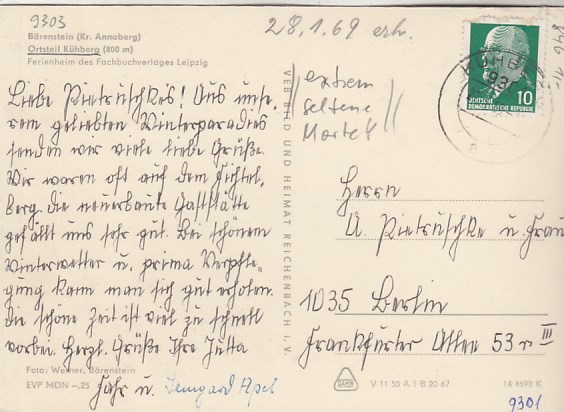 9303
28.1.69 erh.
Bärenstein (Kr. Annaberg)
Ortsteil Kühberg (800 m)
Ferienheim des Fachbuchverlages Leipzig
Liebe Pietruschkes! Aus unse-
rem geliebten Winterparadies
senden wir viele liebe Grüße.
Wir waren oft auf dem Fichtel-
berg. Die neuerbaute Gaststätte
gefällt uns sehr gut. Bei schönem
Winterwetter u. prima Verpfle-
gung kann man sich gut erholen.
Die schöne Zeit ist viel zu schnell
vorbei. Herzl. Grüße Ihre Jutta
Jahr u. Irmgard Apel
Foto: Werner, Bärenstein
EVP MDN -,25
VEB BILD UND HEIMAT REICHENBACH I. V.
extrem
seltene
10
DEUTSCHE
DEMOKRATISCHE REPUBLIK
Herrn
A. Pietruschke u. Frau
1035 Berlin
Frankfurter Allee 53 r III
V 11 50 A 1 B 20 67
14 4698 K
9301